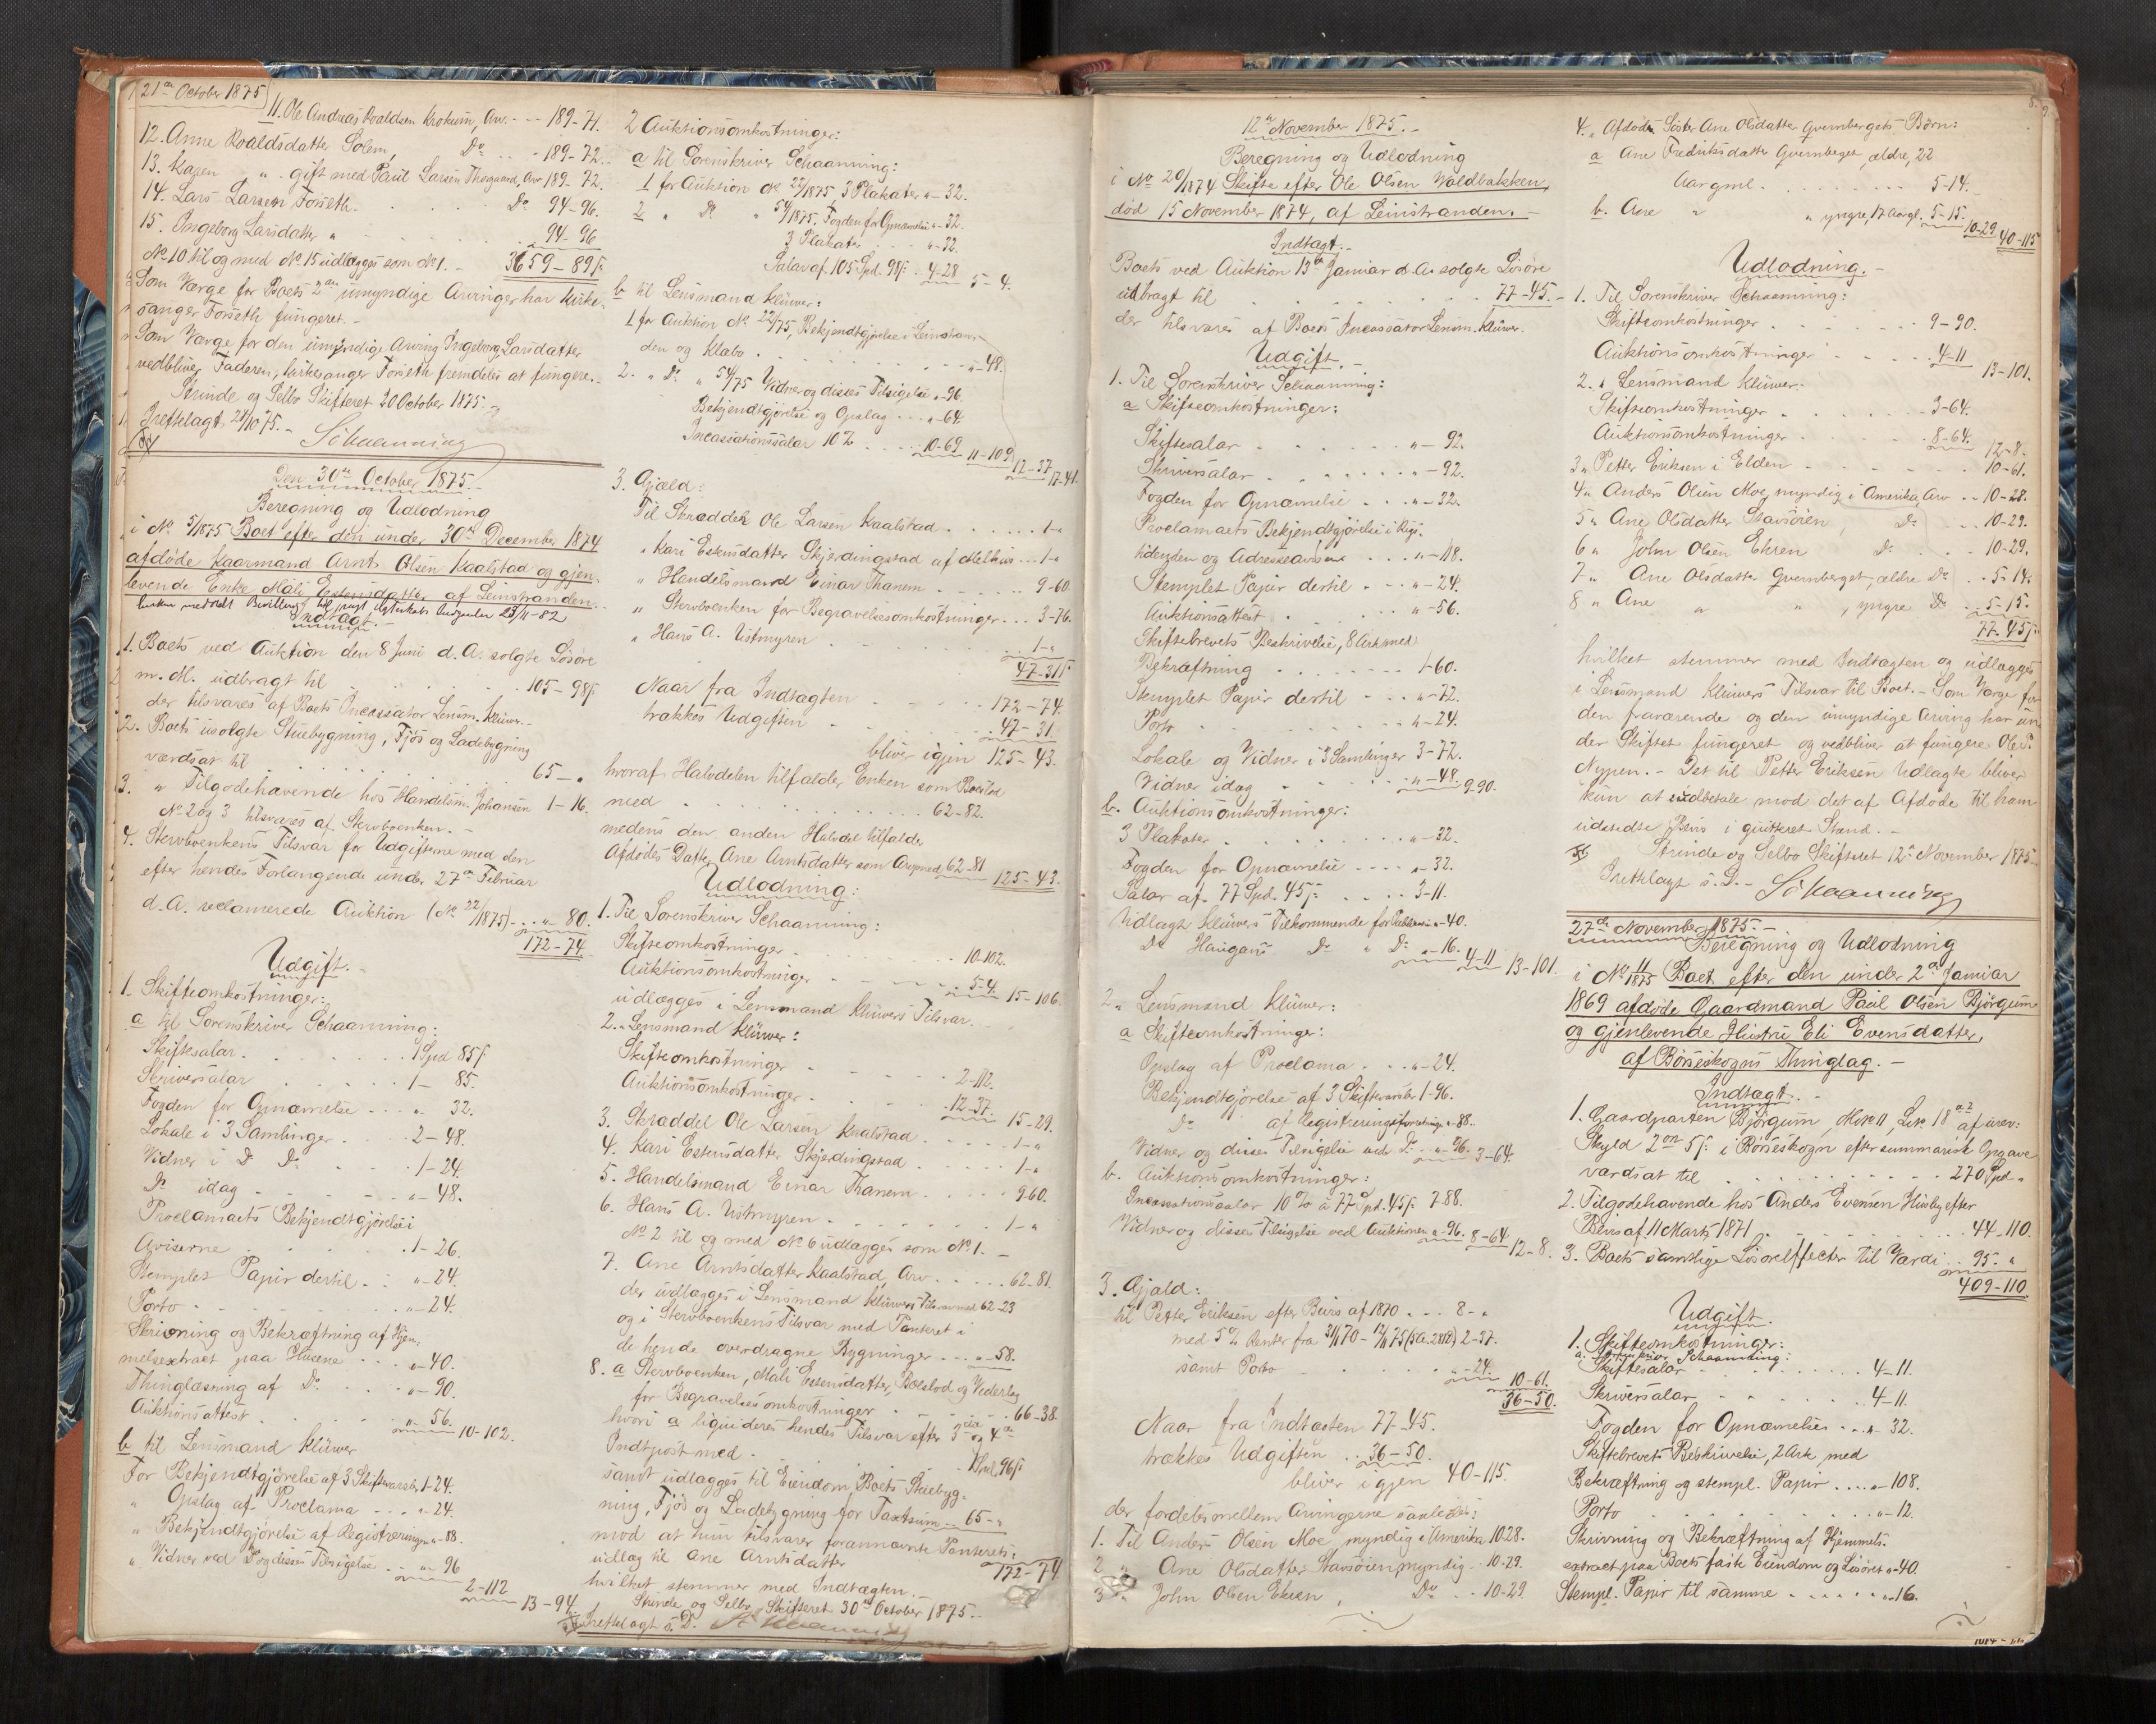 21de October 1875
11. Ole Andreas Roaldsen Krokum, Arv. - - 189-71.
12. Anne Roaldsdatter Solem, Do . . - 189-72.
13. Karen " - gift med Paul Larsen Thorgaard, Arv 189-72.
14. Lars Larsen Forseth. . . . . Do 94-96.
15. Ingeborg Larsdatter " - . . . . . 94-96
No 10 til og med No 15 udlægges som No 1. - 3659-89 s.
Som Værge for Boets 2de umyndige Arvinger har Kirke-
sanger Forseth fungeret. -
Som Værge for den umyndige Arving Ingeborg Larsdatter
vedbliver Faderen, Kirkesanger Forseth fremdeles at fungere. -
Strinde og Selbo Skifteret 20 October 1875. -
Fremlagt 21/10 75. - Schaanning
Den 30te October 1875. -
Beregning og Udlodning
i No 5/1875 Boet efter den under 30te December 1874
afdøde Kaarmand Arnt Olsen Kaalstad og gjen-
levende Enke Mali Estensdatter af Leinstranden. -
Indtægt. -
1. Boets ved Auktion den 8 Juni d. A. solgte Løsøre
m. M. udbragt til . . . . 105-98 s.
der tilsvares af Boets Incassator Lensm. Klüwer. -
2. Boets usolgte Stuebygning, Fjøs og Ladebygning
værdsat til . . . . 65 - "
3. " Tilgodehavende hos Handelsm. Johansen 1-16.
No 2 og 3 tilsvares af Stervboenken. -
4. Stervboenkens Tilsvar for Udgifterne med den
efter hendes Forlangende under 27de Februar
d. A. reclamerede Auktion (No 22/1875) - . . " 80.
172-74.
Udgift. -
1. Skifteomkostninger:
a til Sorenskriver Schaanning:
Skiftesalær . . . . . 1 Spd 85 s.
Skriversalær . . . . . 1 - 85.
Fogden for Opnævnelse . . . " 32.
Lokale i 3 Samlinger . . . 2-48.
Vidner i Do Do . . . 1-24.
Do idag . . . . . "-48.
Proclamaets Bekjendtgjørelse i
Aviserne . . . . . 1-26.
Stemplet Papir dertil . . "-24.
Porto . . . . . "-24.
Skrivning og Bekræftning af Hjem-
melsextract paa Husene . . . "-40.
Thinglæsning af Do . . . "-90.
Auktionsattest . . . . . "-56. 10-102.
b til Lensmand Klüwer
For Bekjendtgjørelse af 3 Skiftevarsler 1-24.
" Opslag af Proclama . . . "-24.
" Bekjendtgjørelse af Registreringen "-88.
" Vidner ved Do og disses Tilsigelse . "-96
2-112 13-94.
2 Auktionsomkostninger:
a til Sorenskriver Schaanning:
1 for Auktion No 22/1875, 3 Plakater "-32.
2 " Do " 54/1875, Fogden for Opnævnelse "-32.
3 Plakater . . . "-32.
Salær af 105 Spd. 98 s. . 4-28 5-4.
b til Lensmand Klüwer:
1 for Auktion No 22/75, Bekjendtgjørelse i Leinstran-
den og Klæbo . . . . . "-48.
2. " Do " 54/75 Vidner og disses Tilsigelse "-96.
Bekjendtgjørelse og Opslag . . . "-64.
Incassationssalær 10% . . . 10-69 11-109 12-37 17-41.
3. Gjæld:
Til Skrædder Ole Larsen Kaalstad . . . . . 1-"
" Kari Estensdatter Skjerdingstad af Melhus . . . 1-"
" Handelsmand Einar Thanem . . . . . 9-60.
" Stervboenken for Begravelsesomkostninger . . . 3-76.
" Hans A. Ustmyren . . . . . 1-"
47-31 s.
Naar fra Indtægten . . . . . 172-74.
trækkes Udgiften . . . . . 47-31.
bliver igjen 125-43.
hvoraf Halvdelen tilfalder Enken som Boeslod
med . . . . . 62-82.
medens den anden Halvdel tilfalder
Afdødes Datter Ane Arntsdatter som Arv med 62-81 125-43.
Udlodning:
1. Til Sorenskriver Schaanning:
Skifteomkostninger . . . . . 10-102.
Auktionsomkostninger . . . . . 5-4. 15-106
udlægges i Lensmand Klüwers Tilsvar.
2. " Lensmand Klüwer:
Skifteomkostninger . . . . . 2-112.
Auktionsomkostninger . . . . . 12-37. 15-29.
3. Skrædder Ole Larsen Kaalstad . . . . . 1-"
4. Kari Estensdatter Skjerdingstad . . . . . 1-"
5. Handelsmand Einar Thanem . . . . . 9-60.
6. Hans A. Ustmyren . . . . . 1-"
No 2 til og med No 6 udlægges som No 1. -
7. Ane Arntsdatter Kaalstad, Arv . . . . . 62-81.
der udlægges i Lensmand Klüwers Tilsvar med 62-23
og i Stervboenkens Tilsvar med Panteret i
de hende overdragne Bygninger . . . "-58.
8. a Stervboenken, Mali Estensdatter, Boeslod og Vederlag
for Begravelsesomkostninger . . . . 66-38
hvori a liquideres hendes Tilsvar efter 3die og 4de
Indtpost med . . . . 1 Spd. 96 s.
samt udlægges til Eiendom Boets Stuebyg-
ning, Fjøs og Ladebygning for Taxtsum . . 65-"
mod at hun tilsvarer forannævnte Panterets
udlæg til Ane Arntsdatter 172-74
hvilket stemmer med Indtægten. -
Strinde og Selbo Skifteret 30te October 1875. -
Fremlagt s. D. Schaanning
12te November 1875. -
Beregning og Udlodning
i No 20/1874 Skifte efter Ole Olsen Waldbakken,
død 15 November 1874, af Leinstranden. -
Indtægt. -
Boets ved Auktion 13de Januar d. A. solgte Løsøre
udbragt til . . . . . 77-45. -
der tilsvares af Boets Incassator Lensm. Klüwer.
Udgift. -
1. Til Sorenskriver Schaanning:
a Skifteomkostninger:
Skiftesalær . . . . . "-92.
Skriversalær . . . . . "-92.
Fogden for Opnævnelse . . . "-32.
Proclamaets Bekjendtgjørelse i Rigs-
tidenden og Adresseavisen . . . "-118.
Stemplet Papir dertil . . . "-24.
Auktionsattest . . . . "-56.
Skiftebrevets Beskrivelse, 8 Ark med
Bekræftning . . . . . 1-60.
Stemplet Papir dertil . . . "-72.
Porto . . . . . "-24.
Lokale og Vidner i 3 Samlinger 3-72.
Vidner idag . . . . . "-48. 9-90.
b. Auktionsomkostninger:
3 Plakater . . . . . "-32.
Fogden for Opnævnelse . . . "-32.
Salær af 77 Spd. 45 s. . . . 3-11.
Udlagt Klüwers Tilkommende for "-40.
Do Haugans Do " Do "-16. 4-11 13-101.
2. " Lensmand Klüwer:
a Skifteomkostninger:
Opslag af Proclama . . . "-24.
Bekjendtgjørelse af 3 Skiftevarsler 1-96.
Do af Registreringsforretninge "-88.
Vidner og disses Tilsigelse ved Do . "-96. 3-64.
b. Auktionsomkostninger:
Incassationssalær 10% a 77 Spd. 45 s. 7-88.
Vidner og disses Tilsigelse ved Auktionen "-96. 8-64 12-8.
3. Gjæld:
til Petter Eriksen efter Bevis af 1870 . . . 8-"
med 5% Renter fra 31/1 70 - 12/11 75 2-37.
samt Porto . . . . "-24. 10-61.
36-50.
Naar fra Indtægten 77-45.
trækkes Udgiften . . 36-50.
bliver igjen 40-115.
der fordeles mellem Arvingerne saaledes:
1. Til Anders Olsen Moe, myndig i Amerika 10-28.
2 " Ane Olsdatter Stavsøien, myndig . 10-29.
3 " John Olsen Ekren, Do . 10-29.
4. " Afdødes Søster Ane Olsdatter Qvernbergets Børn:
a Ane Fredriksdatter Qvernberget, ældre, 22
Aar gml. . . . . . 5-14.
b. Ane " " yngre, 17 Aar gl. 5-15. 10-29 40-115
Udlodning. -
1. Til Sorenskriver Schaanning:
Skifteomkostninger . . . . . 9-90.
Auktionsomkostninger . . . . 4-11 13-101.
2. " Lensmand Klüwer:
Skifteomkostninger . . . . . 3-64.
Auktionsomkostninger . . . . . 8-64. 12-8.
3 " Petter Eriksen i Elden . . . . . 10-61.
4 " Anders Olsen Moe, myndig i Amerika, Arv . . 10-28.
5 " Ane Olsdatter Stavsøien, Do . . . 10-29.
6 " John Olsen Ekren Do . . . 10-29.
7 " Ane Olsdatter Qvernberget, ældre Do . . 5-14.
8 " Ane " " , yngre Do . . 5-15.
77-45 s.
hvilket stemmer med Indtægten og udlægges
i Lensmand Klüwers Tilsvar til Boet. - Som Værge for
den fraværende og den umyndige Arving har un-
der Skiftet fungeret og vedbliver at fungere Ole P.
Nypen. - Det til Petter Eriksen Udlagte bliver
kun at udbetale mod det af Afdøde til ham
udstedte Bevis i quitteret Stand. -
Strinde og Selbo Skifteret 12te November 1875 -
Fremlagt s. D. - Schaanning
27de November 1875. -
Beregning og Udlodning
i No 11/1875 Boet efter den under 2den Januar
1869 afdøde Gaardmand Paul Olsen Bjørgum
og gjenlevende Hustru Eli Evensdatter,
af Børseskogns Thinglag. -
Indtægt. -
1. Gaardparten Bjørgum, M. No 11, L. No 18 a2 af urev:
Skyld 2 ort 5 s. i Børseskogn efter summarisk Opgave
værdsat til . . . . . 270 Spd "
2. Tilgodehavende hos Anders Evensen Husby efter
Bevis af 11 Marts 1871 . . . . . 44-110.
3. Boets samtlige Løsøreffecter til Værdi . . 95-"
409-110.
Udgift.
1. Skifteomkostninger:
a. Sorenskriver Schaanning:
Skiftesalær . . . . . 4-11.
Skriversalær . . . . . 4-11.
Fogden for Opnævnelse . . . "-32.
Skiftebrevets Beskrivelse, 2 Ark, med
Bekræftning og stempl. Papir . . . . "-108.
Porto . . . . . "-12.
Skrivning og Bekræftning af Hjemmels-
extract paa Boets faste Eiendom og Løsøret "-40.
Stempl. Papir til samme . . . . . "-16.